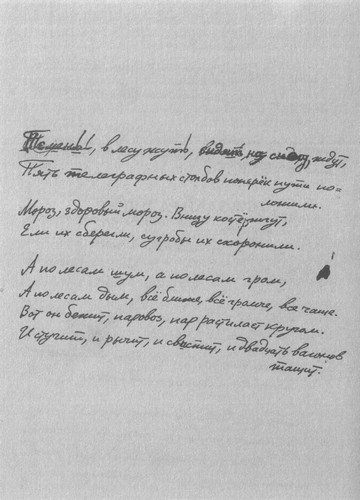 Темень!, в лесу жуть!, видать, на                ждут,
Пять телеграфных столбов поперёк пути по-
ложили.
Мороз, здоровый мороз. Внизу костёр жгут,
Ели их сберегли, сугробы их схоронили.
А по лесам шум, а по лесам гром,
А по лесам дым, всё ближе, всё громче, все чаще.
Вот он бежит, паровоз, пар растиласт кругом.
И стучит, и рычит, и свистит, и двадцать вагонов
тащит.